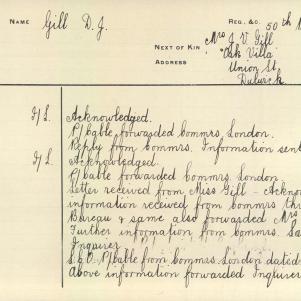 NAME Gill D. J.
REG. &C. 50th
NEXT OF KIN Mrs J. V. Gill
ADDRESS "Oak Villa"
Union St.
Dulwich
F/L. Acknowledged.
P/bable forwarded Commrs. London.
Reply from Commrs. Information sent
F/L. Acknowledged.
P/bable forwarded Commrs. London
Letter received from Miss Gill - Acknow
information received from Commrs thr
Bureau & same also forwarded Mrs
Further information from Commrs.
Inquirer
P/bable from Commrs. London dated
Above information forwarded Inquirer